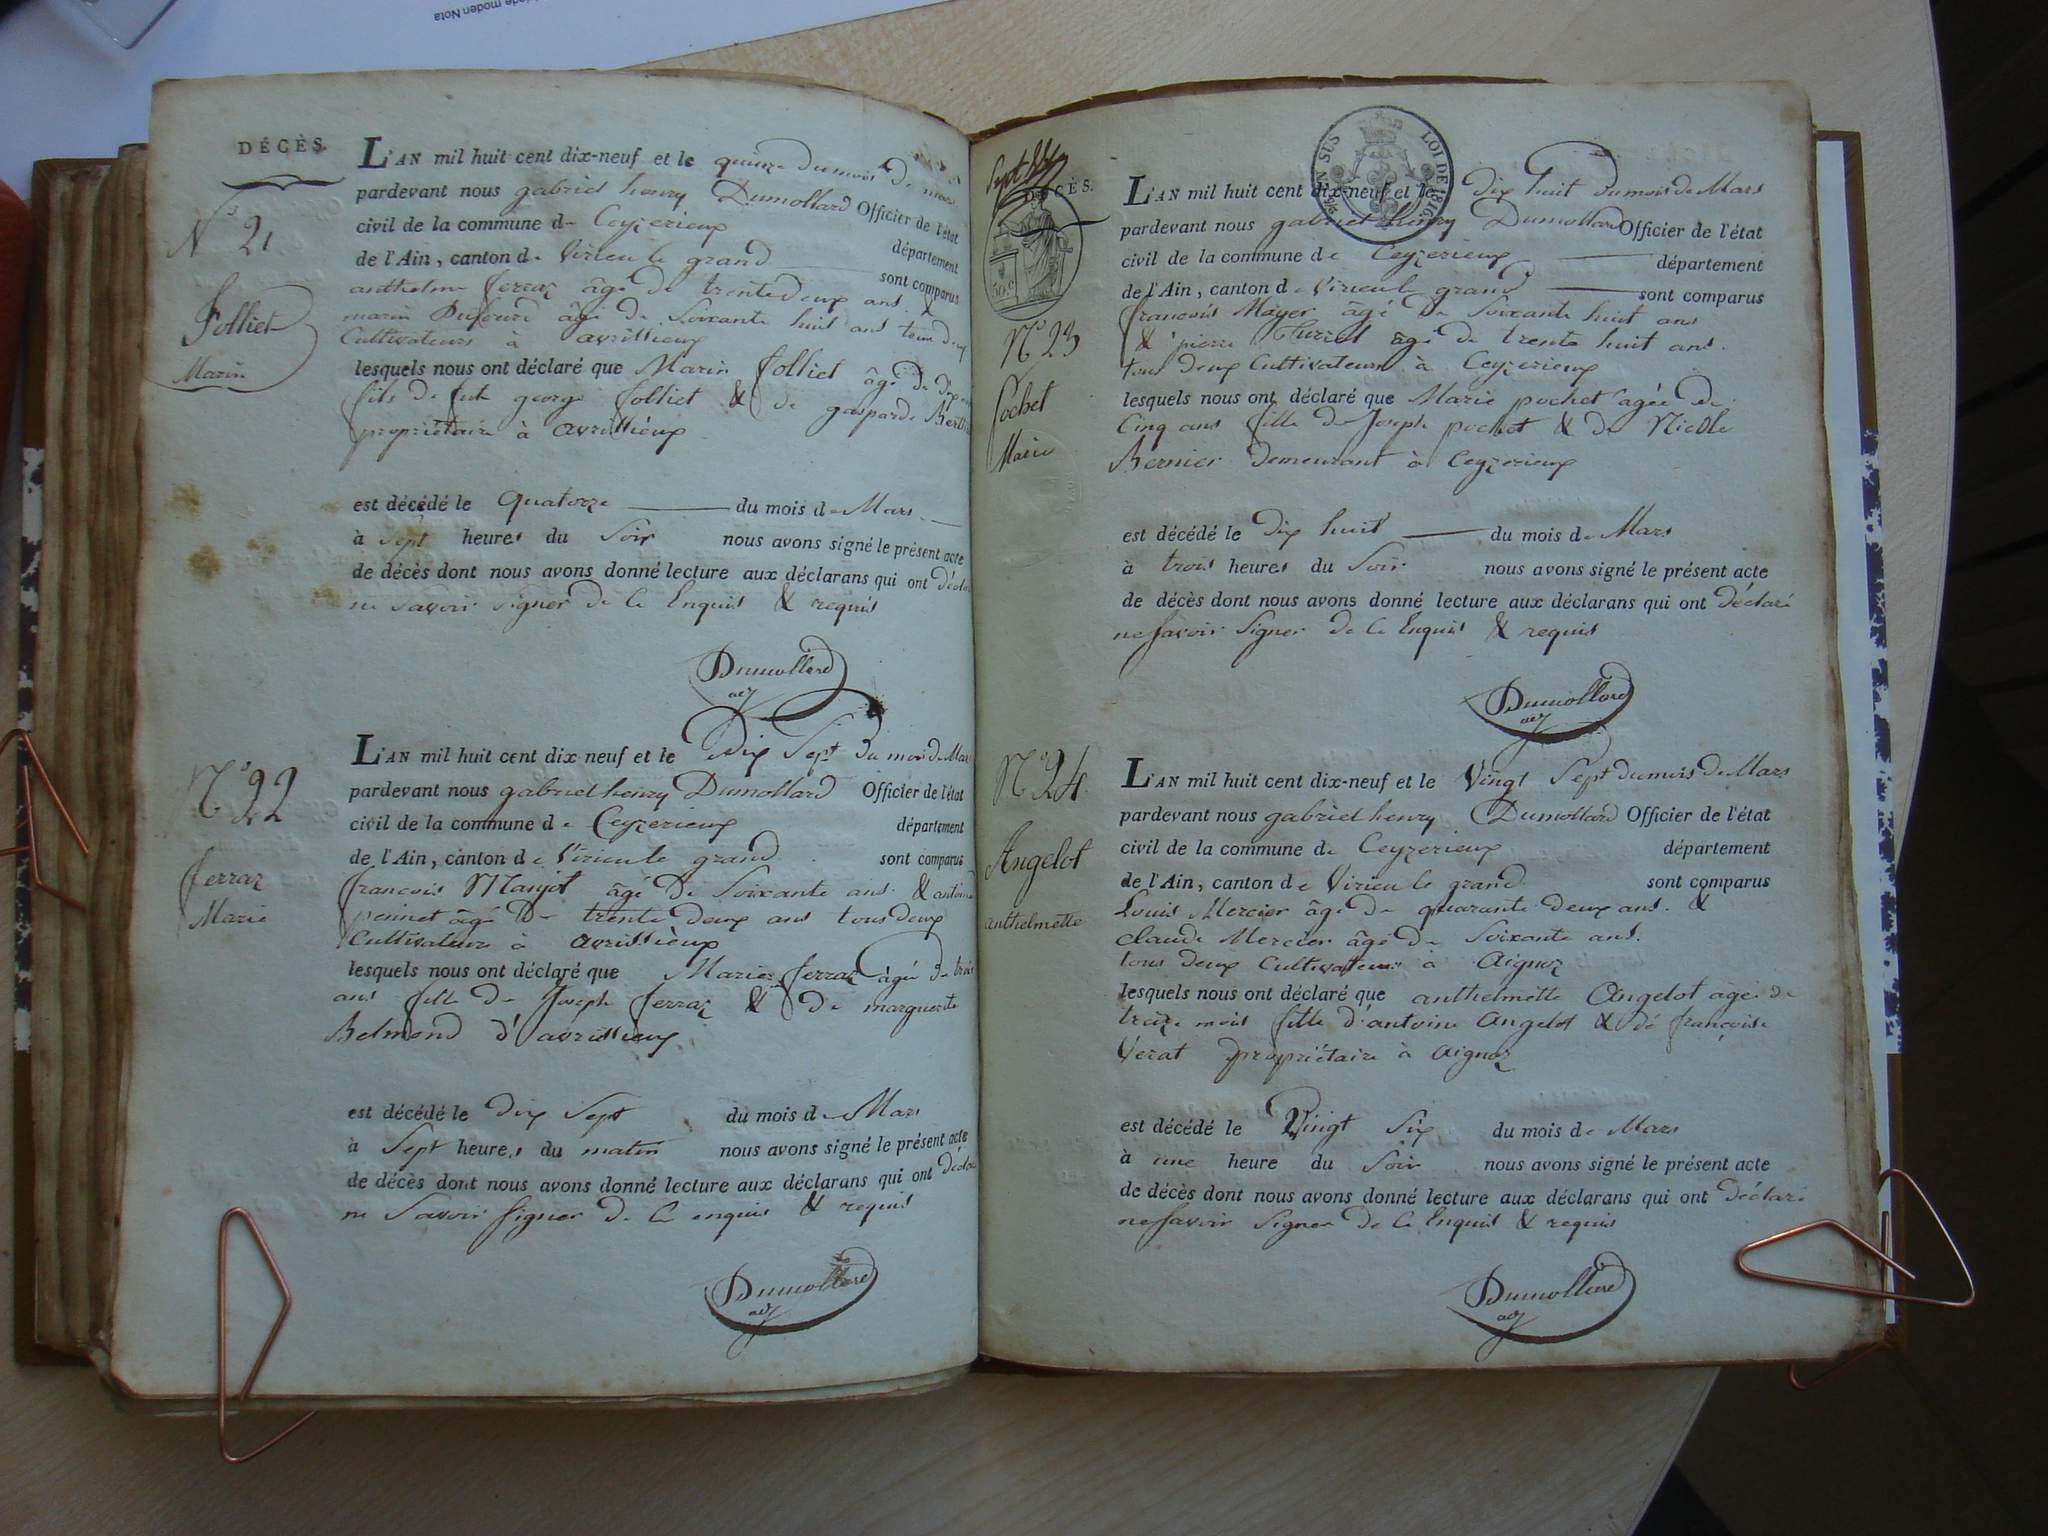 DÉCÈS.
N° 21
Folliet
Marin
L'AN mil huit cent dix-neuf et le quinze du mois de mars
pardevant nous gabriel henry Dumollard Officier de l'état
civil de la commune de Ceyzerieux département
de l'Ain, canton de Virieu le grand sont comparus
anthelme ferraz âgé de trente deux ans &
marin Dufourd âgé de Soixante huit ans tous deux
Cultivateurs à avrissieux
lesquels nous ont déclaré que Marin folliet âgé de
fils de fut george folliet & de gasparde
propriétaire à avrissieux
est décédé le quatorze du mois de Mars
à Sept heures du Soir nous avons signé le présent acte
de décès dont nous avons donné lecture aux déclarans qui ont décla
ne Savoir signer de ce Enquis & requis
Dumollard
adj
N° 22
ferraz
Marie
L'AN mil huit cent dix neuf et le Dix Sept du mois de Mars
pardevant nous gabriel henry Dumollard Officier de l'état
civil de la commune de Ceyzerieux département
de l'Ain, canton de Virieu le grand sont comparus
francois Manjot âgé de Soixante ans & antoine
peinnet âgé de trente deux ans tous deux
Cultivateurs à avrissieux
lesquels nous ont déclaré que Marie ferraz âgée de trois
ans fille de Joseph ferraz & de marguerite
Belmond d'avrissieux
est décédé le dix Sept du mois de Mars
à Sept heures du matin nous avons signé le présent acte
de décès dont nous avons donné lecture aux déclarans qui ont décla
ne Savoir signer de ce enquis & requis
Dumollard
adj
Sept
DÉCÈS.
50.c
SUS
LOI DE 1816
N° 23
Pochet
Marie
L'AN mil huit cent dix-neuf et le dix huit du mois de Mars
pardevant nous gabriel henry Dumollard Officier de l'état
civil de la commune de Ceyzerieux département
de l'Ain, canton de Virieu le grand sont comparus
francois Mayer âgé de Soixante huit ans
& pierre Turrel âgé de trente huit ans.
tous deux Cultivateurs à Ceyzerieux
lesquels nous ont déclaré que Marie pochet agée de
Cinq ans fille de Joseph pochet & de Nicole
Bernier demeurant à Ceyzerieux
est décédé le dix huit du mois de Mars
à trois heures du Soir nous avons signé le présent acte
de décès dont nous avons donné lecture aux déclarans qui ont déclaré
ne Savoir Signer de ce Enquis & requis
Dumollard
adj
N° 24
Angelot
anthelmette
L'AN mil huit cent dix-neuf et le Vingt Sept du mois de Mars
pardevant nous gabriel henry Dumollard Officier de l'état
civil de la commune de Ceyzerieux département
de l'Ain, canton de Virieu le grand sont comparus
Louis Mercier âgé de quarante deux ans. &
claude Mercier âgé de Soixante ans.
tous deux Cultivateurs à Aignoz
lesquels nous ont déclaré que anthelmette Angelot âgée de
treize mois fille d'antoine Angelot & de françoise
Verat propriétaire à Aignoz
est décédé le Vingt Six du mois de Mars
à une heure du Soir nous avons signé le présent acte
de décès dont nous avons donné lecture aux déclarans qui ont déclaré
ne Savoir Signer de ce Enquis & requis
Dumollard
adj